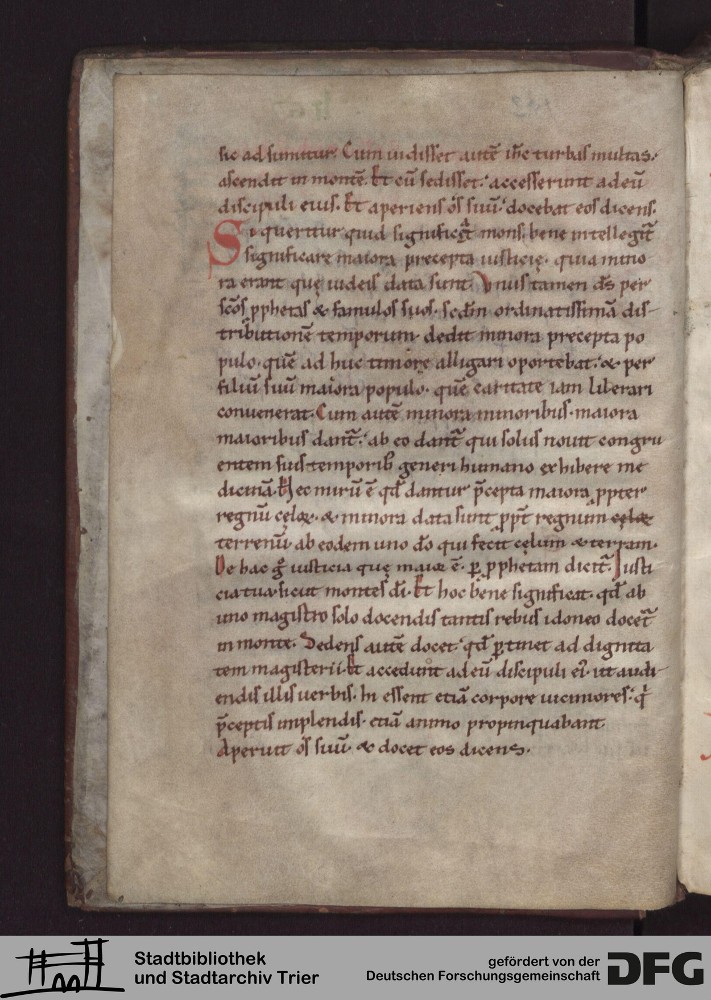 sic ad sumitur. Cum uidisset autē ihc turbas multas.
ascendit in montē. Et cū sedisset. accesserunt ad eū
discipuli eius. Et aperiens os suū. docebat eos dicens.
Si queritur quid significet mons. bene intellegit̄
significare maiora precepta iusticię. quia mino
ra erant quę iudeis data sunt. Vnus tamen ds̄ per
sc̄os ꝓphetas & famulos suos. scd̄m ordinatissimā dis-
tributionē temporum dedit minora precepta po
pulo. quē ad huc timore alligari oportebat. & per
filiū suū maiora populo. quē caritate iam liberari
conuenerat. Cum autē minora minoribus. maiora
maioribus dant̄. ab eo dant̄ qui solus nouit congru
entem suis temporib; generi humano exhibere me
dicinā. Nec mirū ē qd̄ dantur p̄cepta maiora ꝓpter
regnū cęlor̄. & minora data sunt ꝓpt̄ regnum cęlor̄
terrenū. ab eodem uno dō qui fecit cęlum & terram.
De hac g̊ iusticia quę maior ē. ꝑ ꝓphetam dicit̄. Justi
cia tua sicut montes dī. Et hoc bene significat. qd̄ ab
uno magistro solo docendis tantis rebus idoneo docet̄
in monte. Sedens autē docet. qd̄ ꝑtinet ad dignita
tem magisterii. Et accedunt ad eū discipuli ei'. ut audi
endis illis uerbis. hi essent etiā corpore uiciniores. qi
p̄ceptis implendis. etiā animo propinquabant.
Aperuit os suū. & docet eos dicens.
Stadtbibliothek
und Stadtarchiv Trier
gefördert von der
Deutschen Forschungsgemeinschaft
DFG